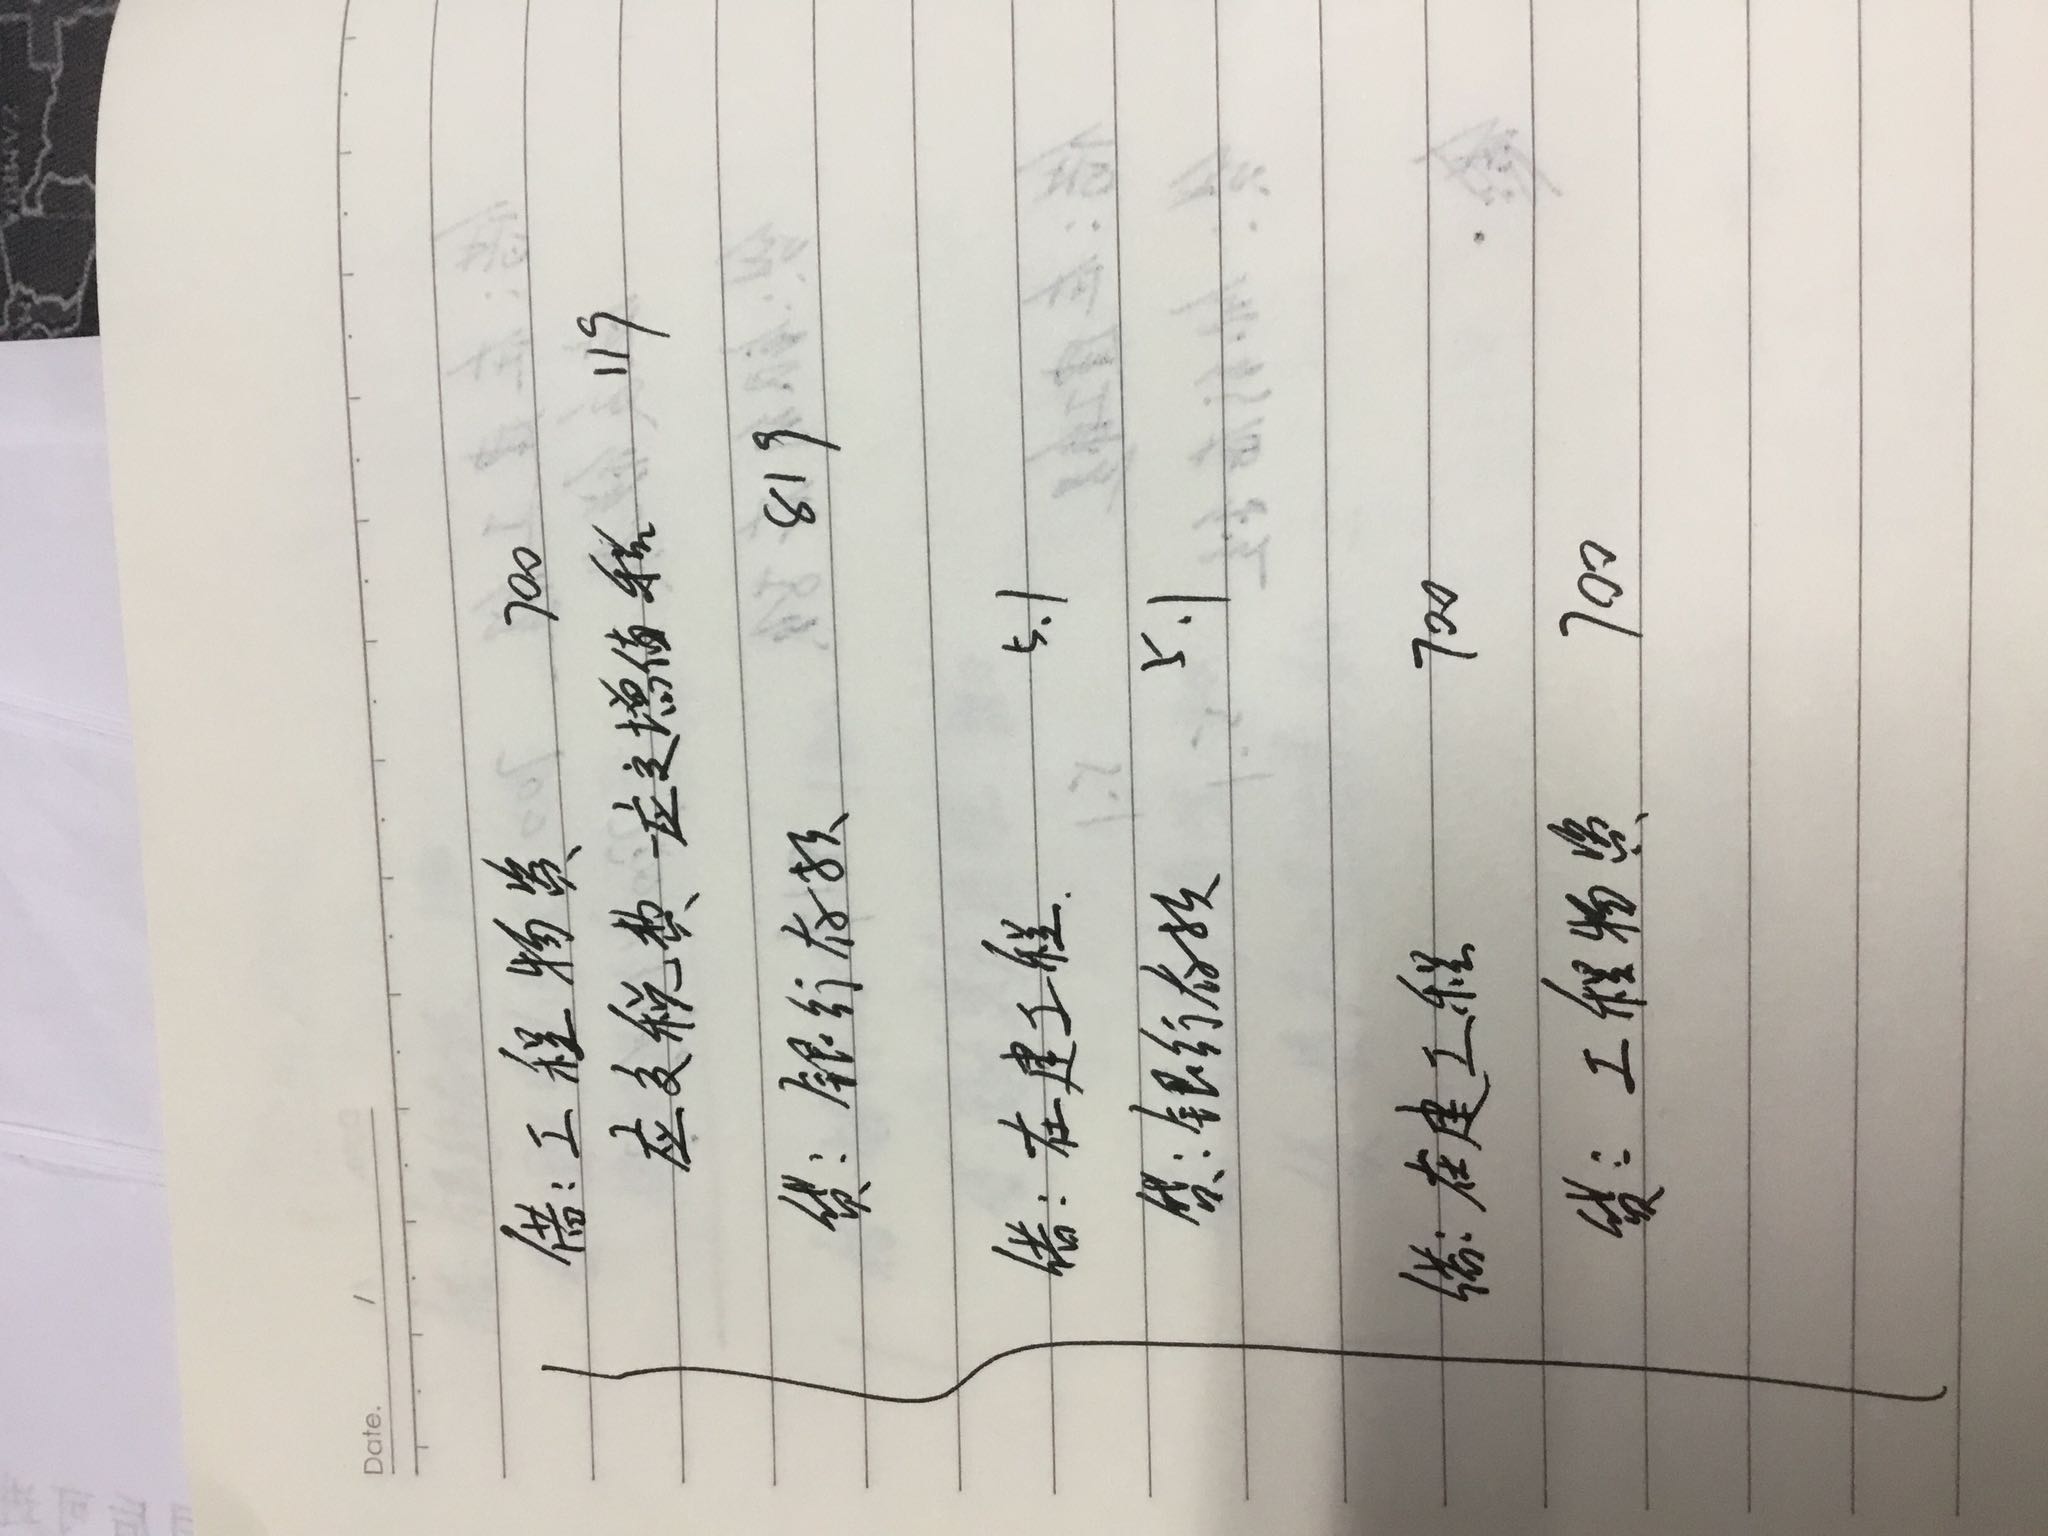 Date. /
借：工程物资 700
应交税费-应交增值税 119
贷：银行存款 819
借：在建工程. 5.1
贷：银行存款 5.1
借：在建工程 700
贷：工程物资 700